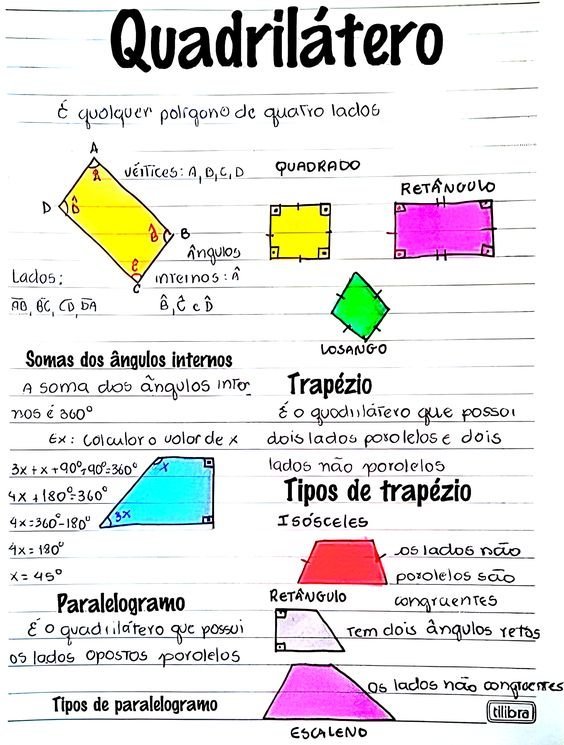 Quadrilátero
É qualquer polígono de quatro lados
A
vértices: A, D, C, D
Â
D
D̂
B̂
B
Ĉ
C
Ângulos
internos: Â
B̂, Ĉ e D̂
Lados:
A̅B̅, B̅C̅, C̅D̅, D̅A̅
QUADRADO
RETÂNGULO
LOSANGO
Somas dos ângulos internos
A soma dos ângulos inter
nos é 360°
Ex: calcular o valor de x
3x+x+90°+90°=360°
4x+180°=360°
4x=360°-180°
4x=180°
x=45°
x
3x
Paralelogramo
É o quadrilátero que possui
os lados opostos paralelos
Tipos de paralelogramo
Trapézio
É o quadrilátero que possui
dois lados paralelos e dois
lados não paralelos
Tipos de trapézio
ISÓSCELES
os lados não
paralelos são
congruentes
RETÂNGULO
Tem dois ângulos retos
os lados não congruentes
ESCALENO
tilibra